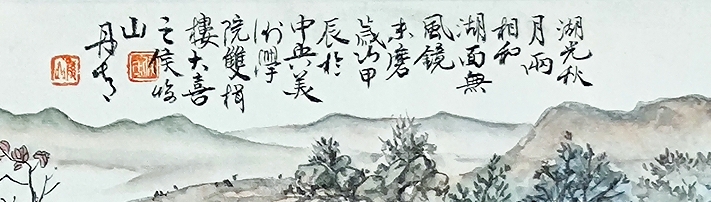 湖光秋
月兩
相和
湖面無
風鏡
未磨
歲次甲
辰於
中央美
術學
院雙楫
樓大喜
之候
山
丹青